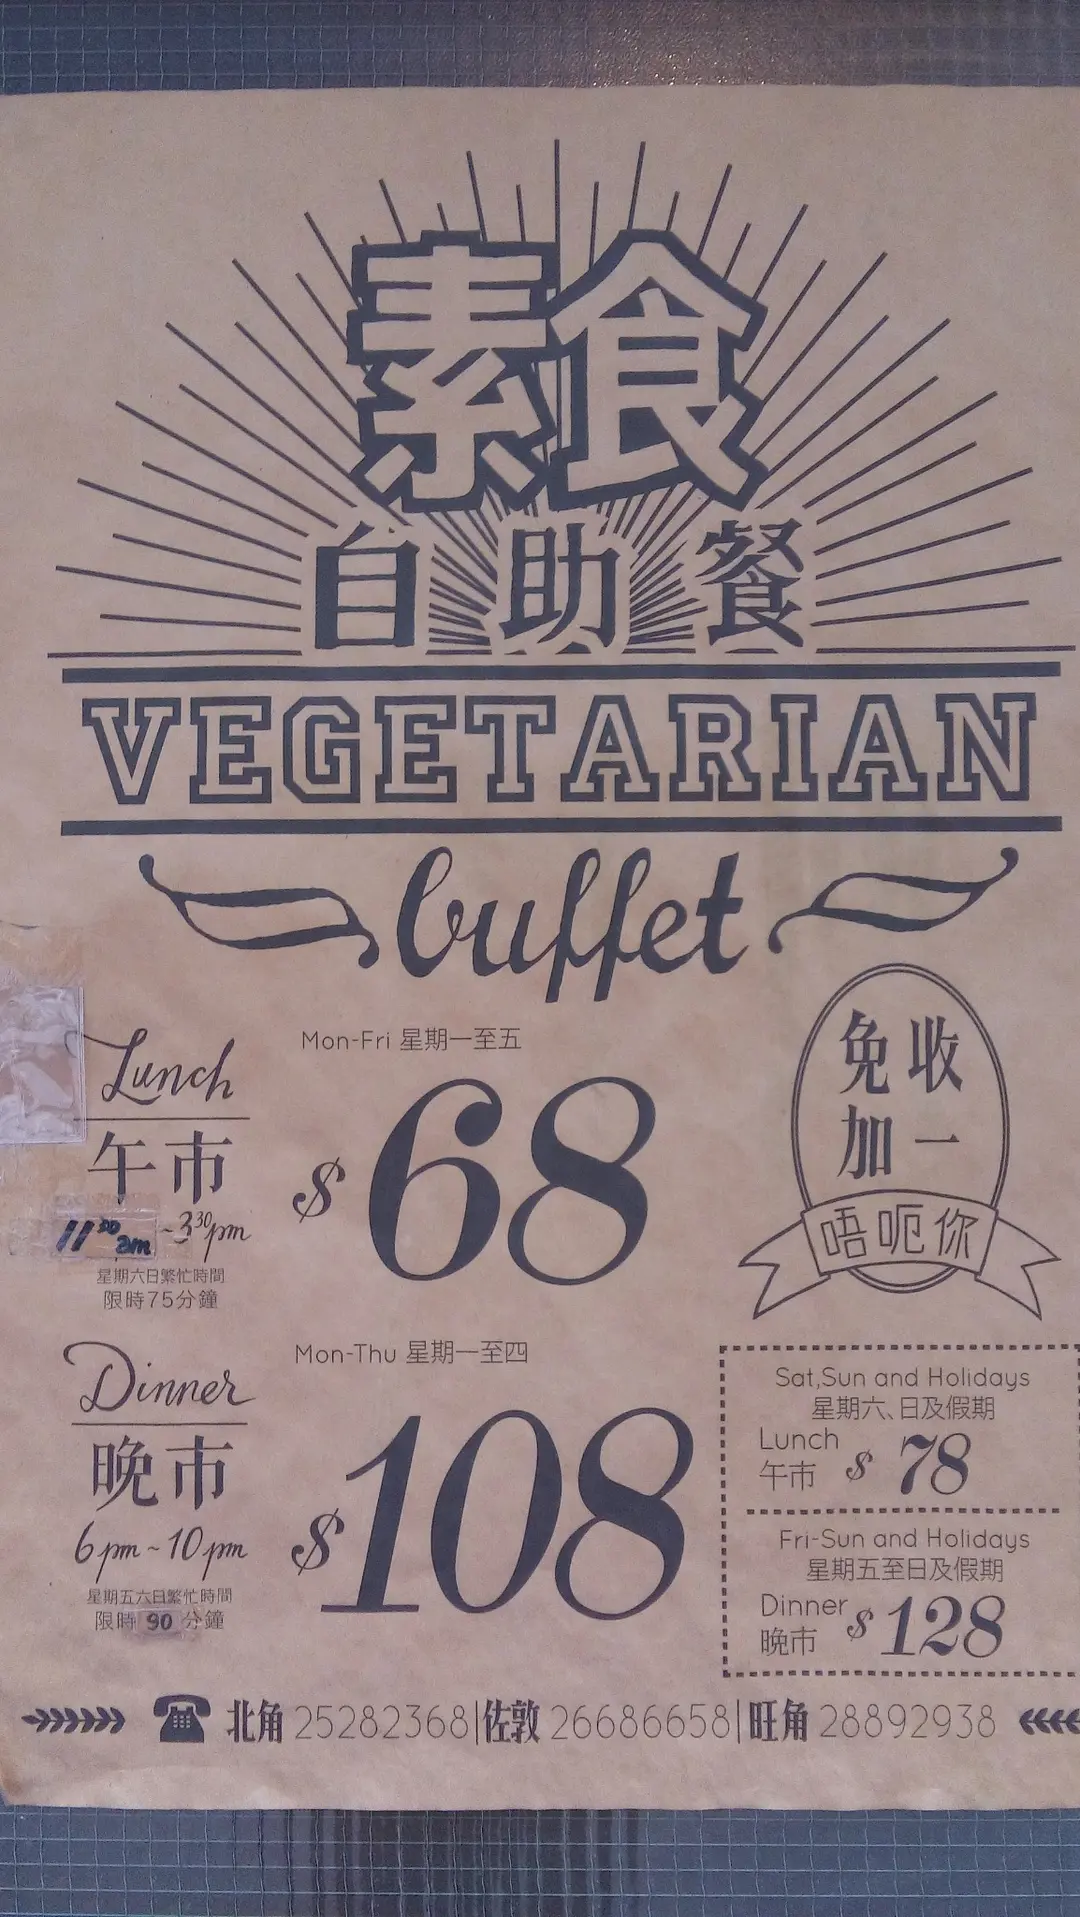 素食
自助餐
VEGETARIAN
buffet
Lunch
午市
11³⁰am ~3³⁰pm
星期六日繁忙時間
限時75分鐘
Mon-Fri 星期一至五
$68
免收
加一
唔呃你
Dinner
晚市
6pm~10pm
星期五六日繁忙時間
限時90分鐘
Mon-Thu 星期一至四
$108
Sat,Sun and Holidays
星期六、日及假期
Lunch
午市 $78
Fri-Sun and Holidays
星期五至日及假期
Dinner
晚市 $128
北角 25282368|佐敦 26686658|旺角 28892938